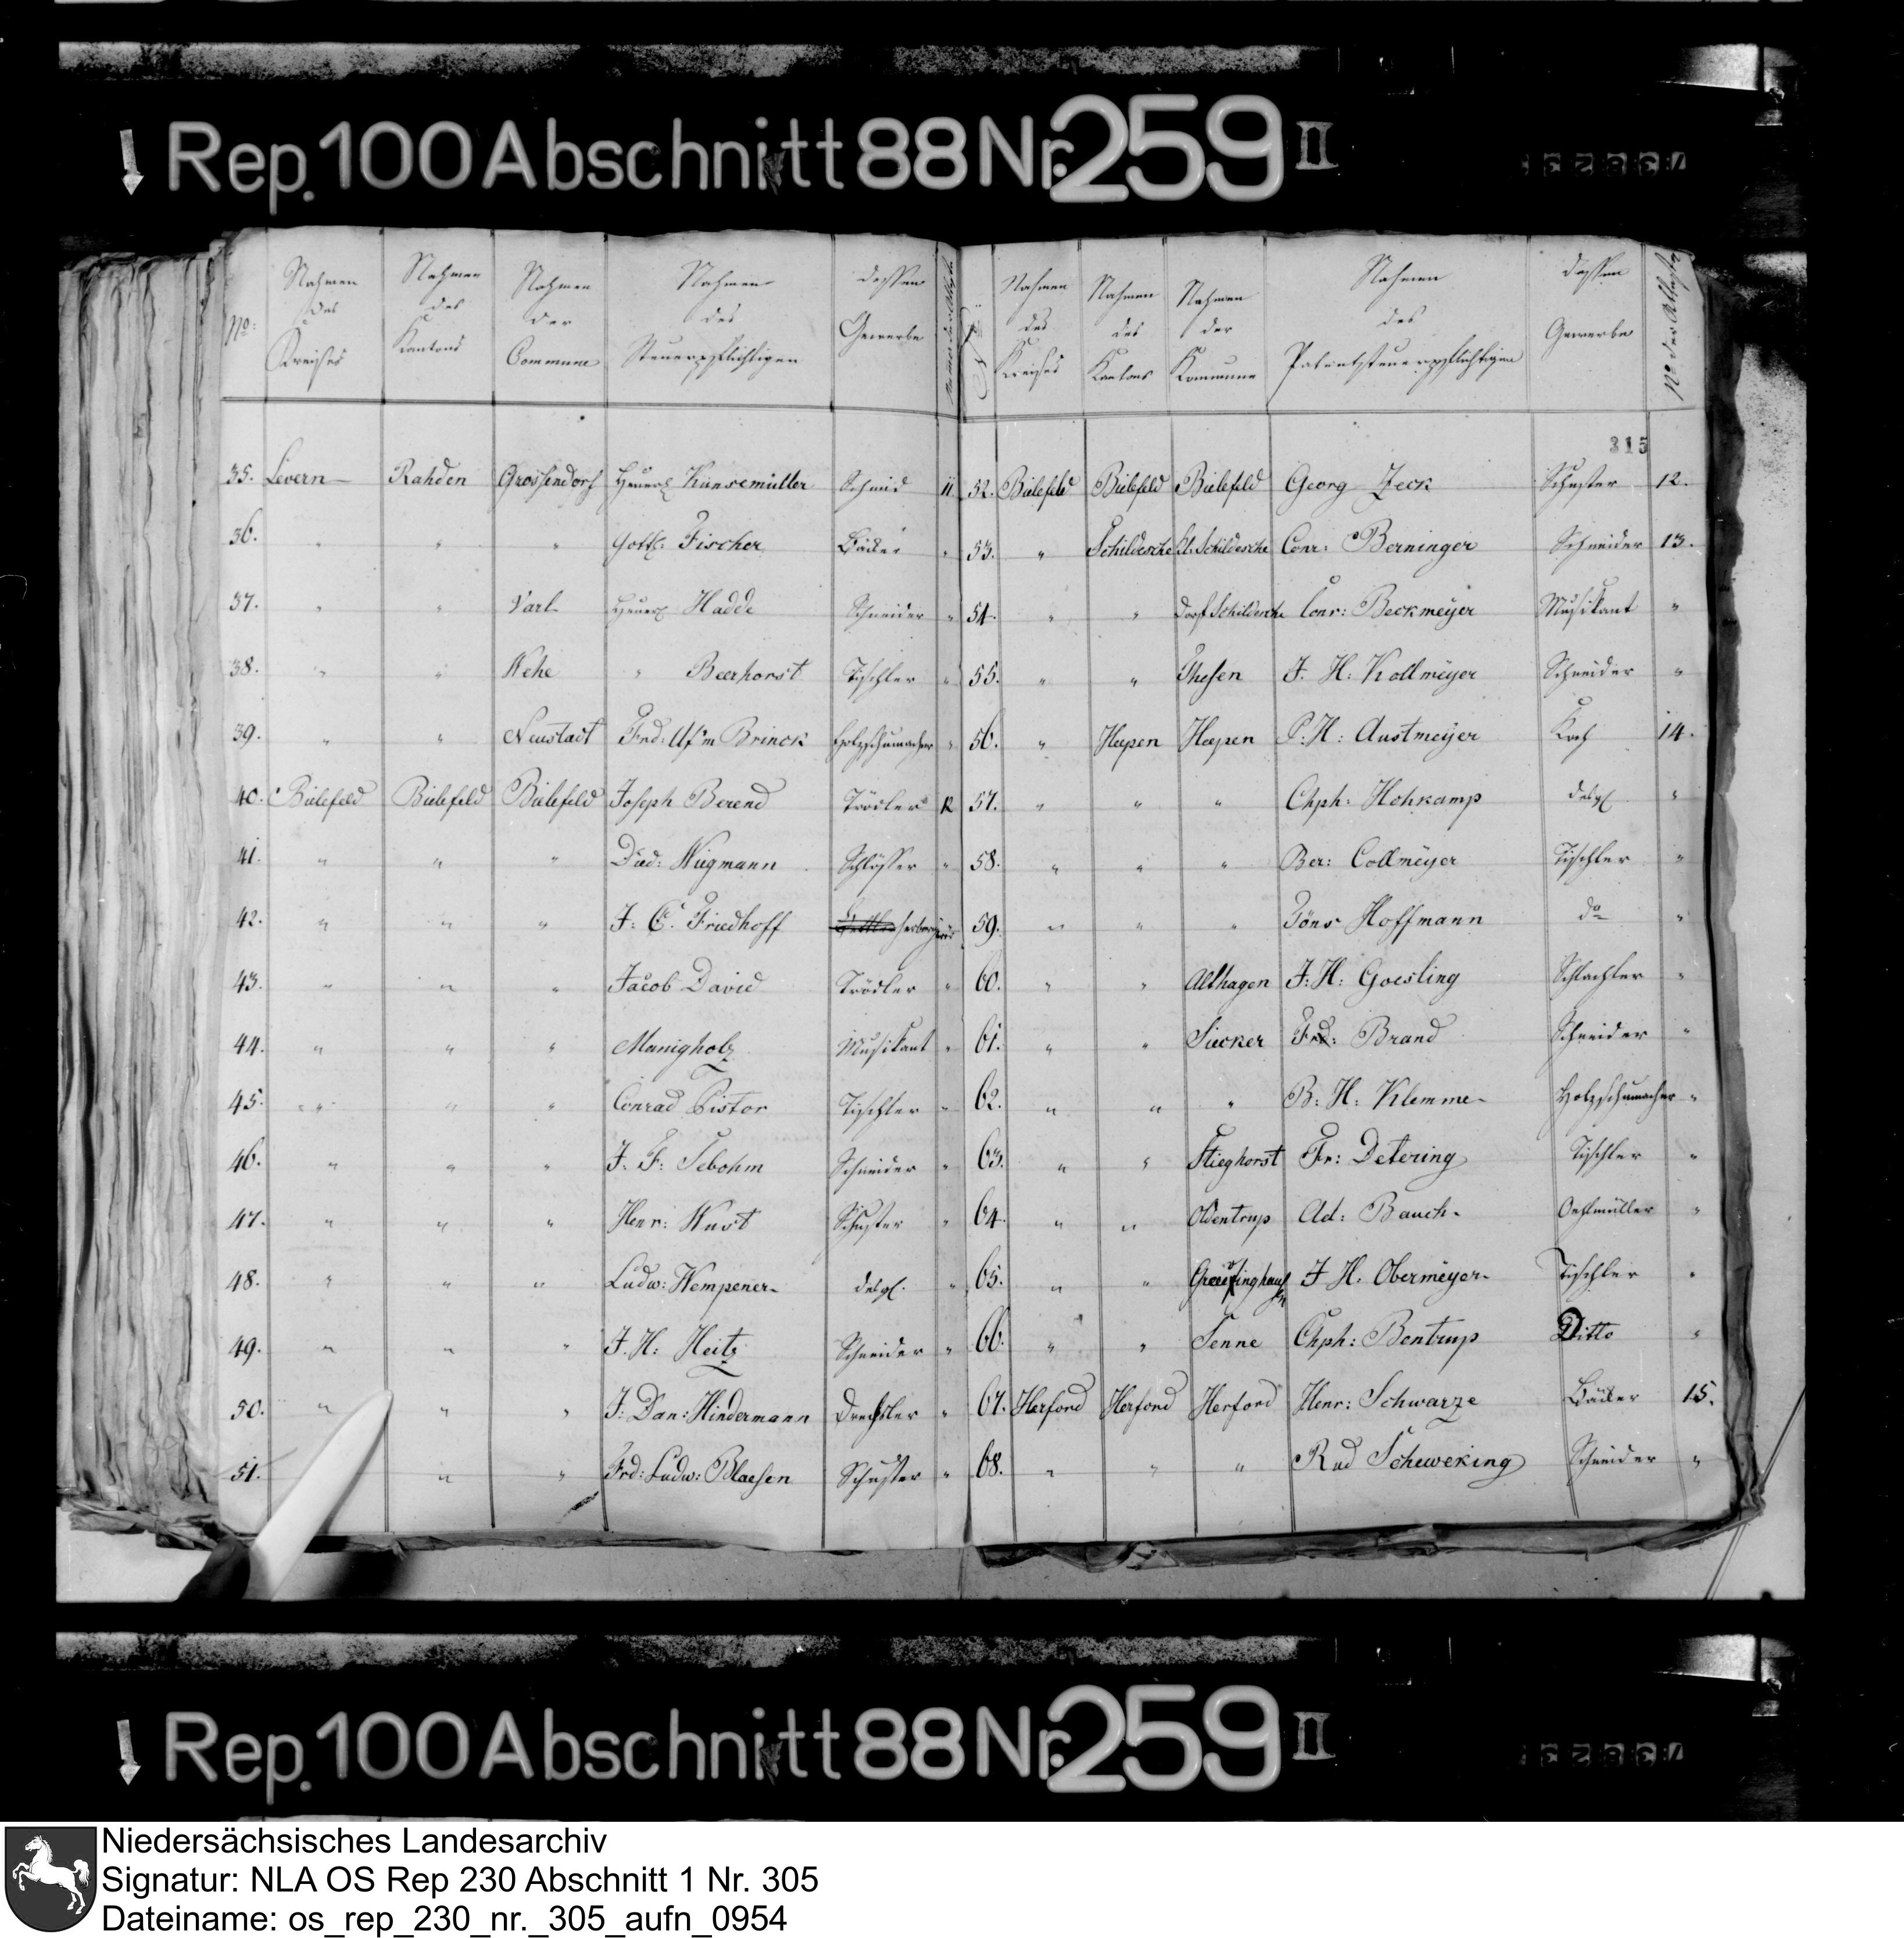 Rep. 100 Abschnitt 88 Nr. 259 II
No: Nahmen des Kreises Nahmen des Kantons Nahmen der Commune Nahmen des Steuerpflichtigen dessen Gewerbe
35. Levern Rahden Grossendorf Heuerl Kunsemüller Schmid 11
36. " " " Gottl: Fischer Bäcker "
37. " " Varl Heuerl Hadde Schneider "
38. " " Wehe " Beerhorst Tischler "
39. " " Neustadt Frd: Uf'm Brinck Holzschumacher "
40. Bielefeld Bielefeld Bielefeld Joseph Berend Trödler 12
41. " " " Died: Wiegmann Schlösser "
42. " " " F: C. Friedhoff
43. " " " Jacob David Trödler "
44. " " " Manigholz Musikant "
45. " " " Conrad Pistor Tischler "
46. " " " F. F: Sebohm Schneider "
47. " " " Henr: Wust Schuster "
48. " " " Ludw: Kempener desgl. "
49. " " " F. H: Heitz Schneider "
50. " " " F: Dan: Hindermann Drechsler "
51. " " Frd: Ludw: Blaesen Schuster "
Nahmen des Kreises Nahmen des Kantons Nahmen der Kommune Nahmen des Patentsteuerpflichtigen dessen Gewerbe No der Atteste
315
52. Bielefeld Bielefeld Bielefeld Georg Zeck Schuster 12.
53. " Schildesche St. Schildesche Conr: Berninger Schneider 13.
54. " " Dorf Schildesche Conr: Beckmeyer Musikant "
55. " " Thesen F. H: Kollmeyer Schneider "
56. " Heepen Heepen P. H: Austmeyer Koch 14.
57. " " " Chph: Hohkamp desgl "
58. " " " Ber: Collmeyer Tischler "
59. " " " Töns Hoffmann do "
60. " " Althagen F: H: Goesling Schlachter "
61. " " Siecker Frd: Brand Schneider "
62. " " " B: H: Klemme Holzschumacher "
63. " " Stieghorst Fr: Detering Tischler "
64. " " Oldentrup Ad: Bauch Oehlmüller "
65. " " F H. Obermeyer Tischler "
66. " " Senne Chph: Bentrup Ditto "
67. Herford Herford Herford Henr: Schwarze Bäcker 15.
68. " " " Rud Scheweking Schneider "
Rep. 100 Abschnitt 88 Nr. 259 II
Niedersächsisches Landesarchiv
Signatur: NLA OS Rep 230 Abschnitt 1 Nr. 305
Dateiname: os_rep_230_nr._305_aufn_0954